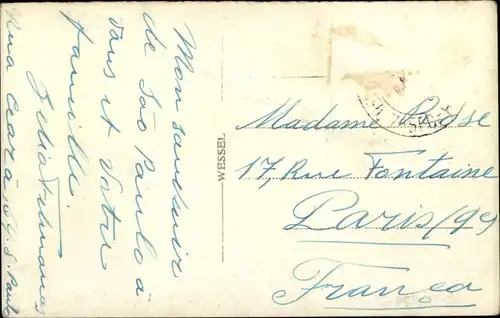 Mon souvenir
de São Paulo à
vous et Votre
famille.
Rua Ceará, S. Paulo
WESSEL
Madame
17, Rue Fontaine
Paris (9e)
França